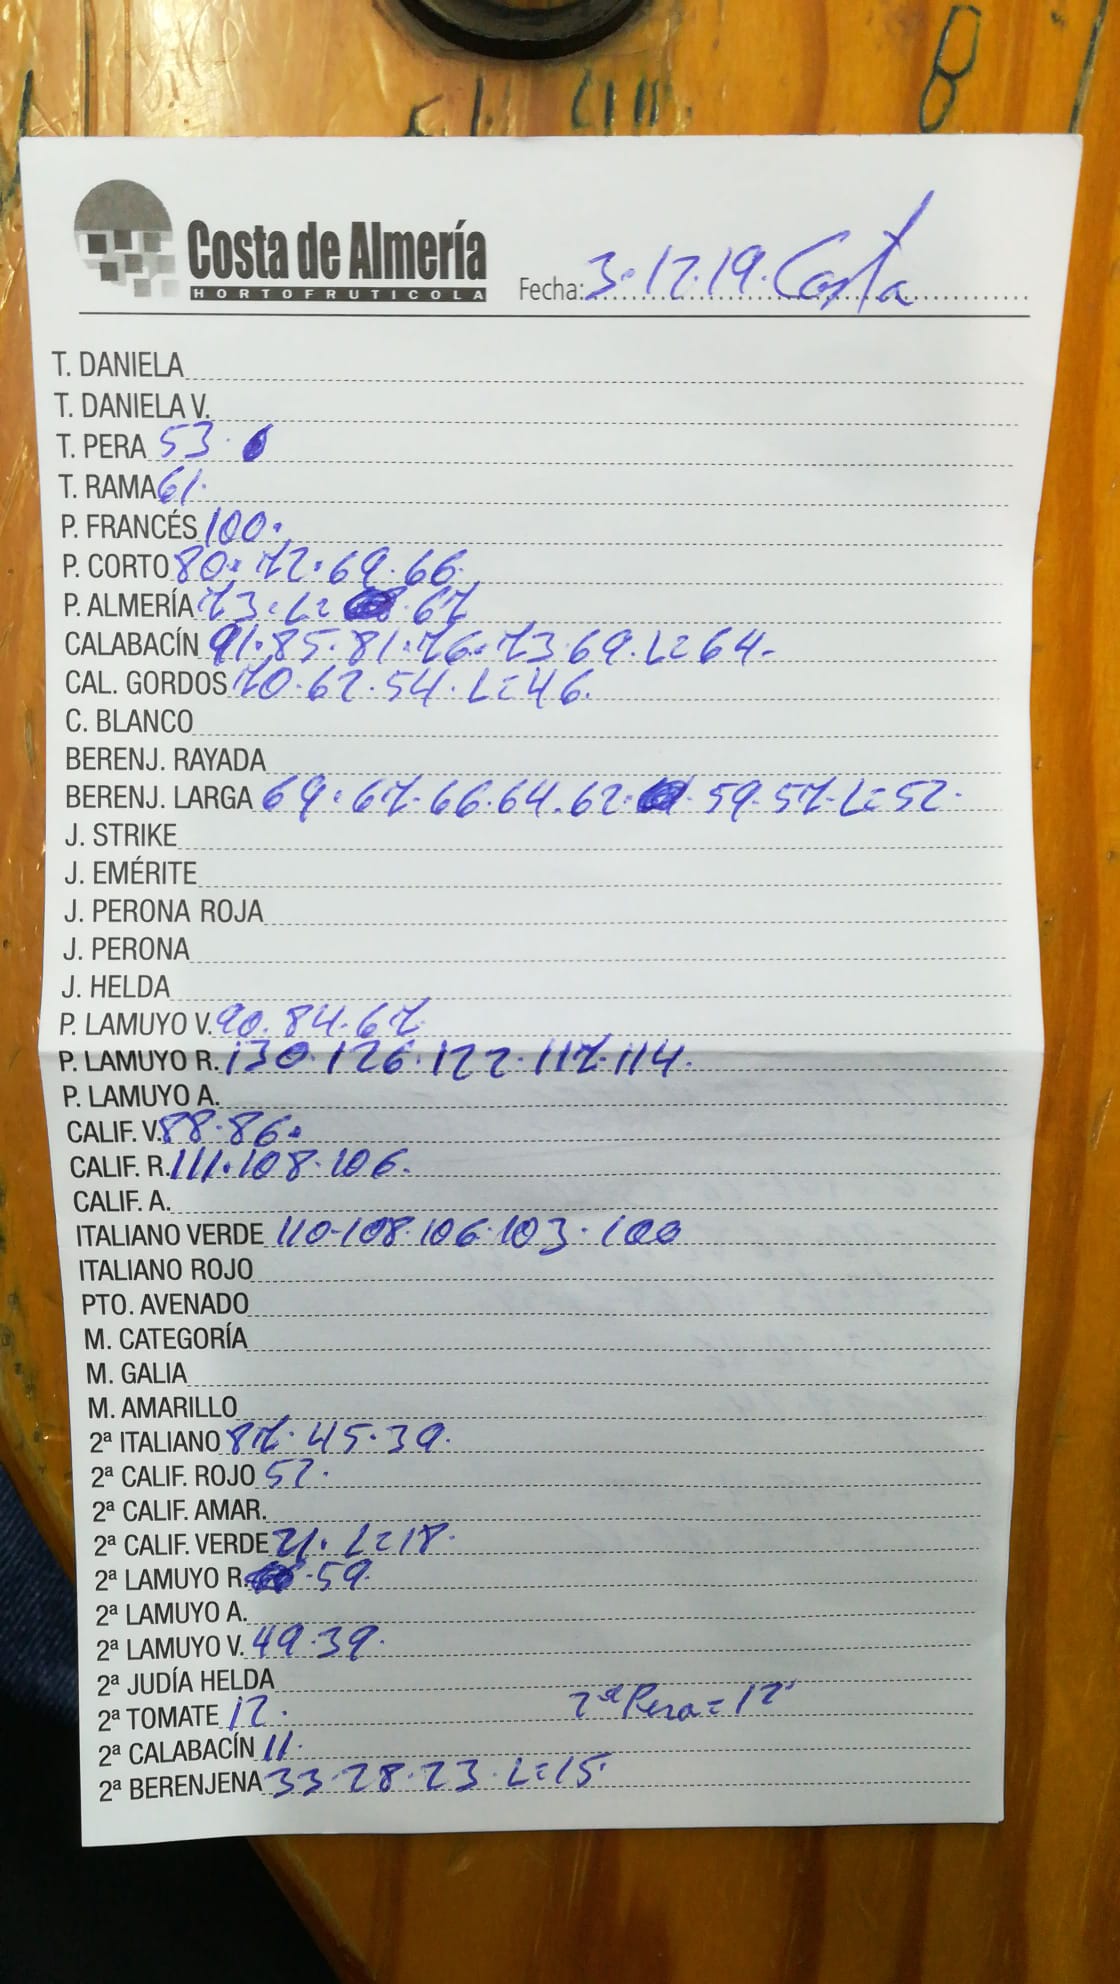 Costa de Almería
HORTOFRUTICOLA
Fecha: 3.12.19. Costa
T. DANIELA
T. DANIELA V.
T. PERA 53.
T. RAMA 61.
P. FRANCÉS 100.
P. CORTO 80. 72. 69. 66.
P. ALMERÍA 73. L= 67
CALABACÍN 91. 85. 81. 76. 73. 69. L= 64.
CAL. GORDOS 70. 62. 54. L= 46.
C. BLANCO
BERENJ. RAYADA
BERENJ. LARGA 69. 67. 66. 64. 62. 59. 57. L= 52.
J. STRIKE
J. EMÉRITE
J. PERONA ROJA
J. PERONA
J. HELDA
P. LAMUYO V. 90. 84. 67
P. LAMUYO R. 130. 126. 122. 117. 114.
P. LAMUYO A.
CALIF. V. 88. 86.
CALIF. R. 111. 108. 106.
CALIF. A.
ITALIANO VERDE 110-108. 106. 103. 100
ITALIANO ROJO
PTO. AVENADO
M. CATEGORÍA
M. GALIA
M. AMARILLO
2ª ITALIANO 87. 45. 39.
2ª CALIF. ROJO 52.
2ª CALIF. AMAR.
2ª CALIF. VERDE 21. L= 18.
2ª LAMUYO R. .59
2ª LAMUYO A.
2ª LAMUYO V. 49. 39.
2ª JUDÍA HELDA
2ª TOMATE 12. 2ª Pera= 12
2ª CALABACÍN 11.
2ª BERENJENA 33. 28. 23. L= 15.